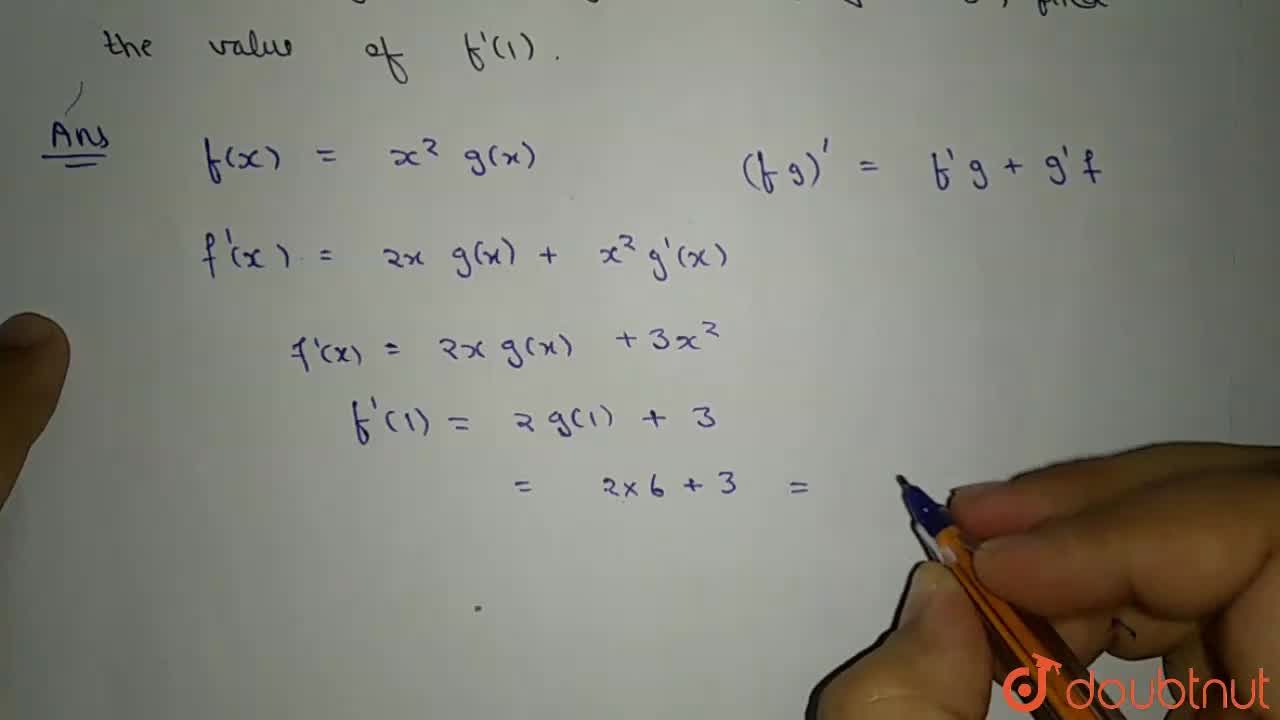 the value of f'(1).
Ans
f(x) = x² g(x)
(fg)' = f'g + g'f
f'(x) = 2x g(x) + x² g'(x)
f'(x) = 2x g(x) + 3x²
f'(1) = 2 g(1) + 3
= 2×6 + 3 =
doubtnut